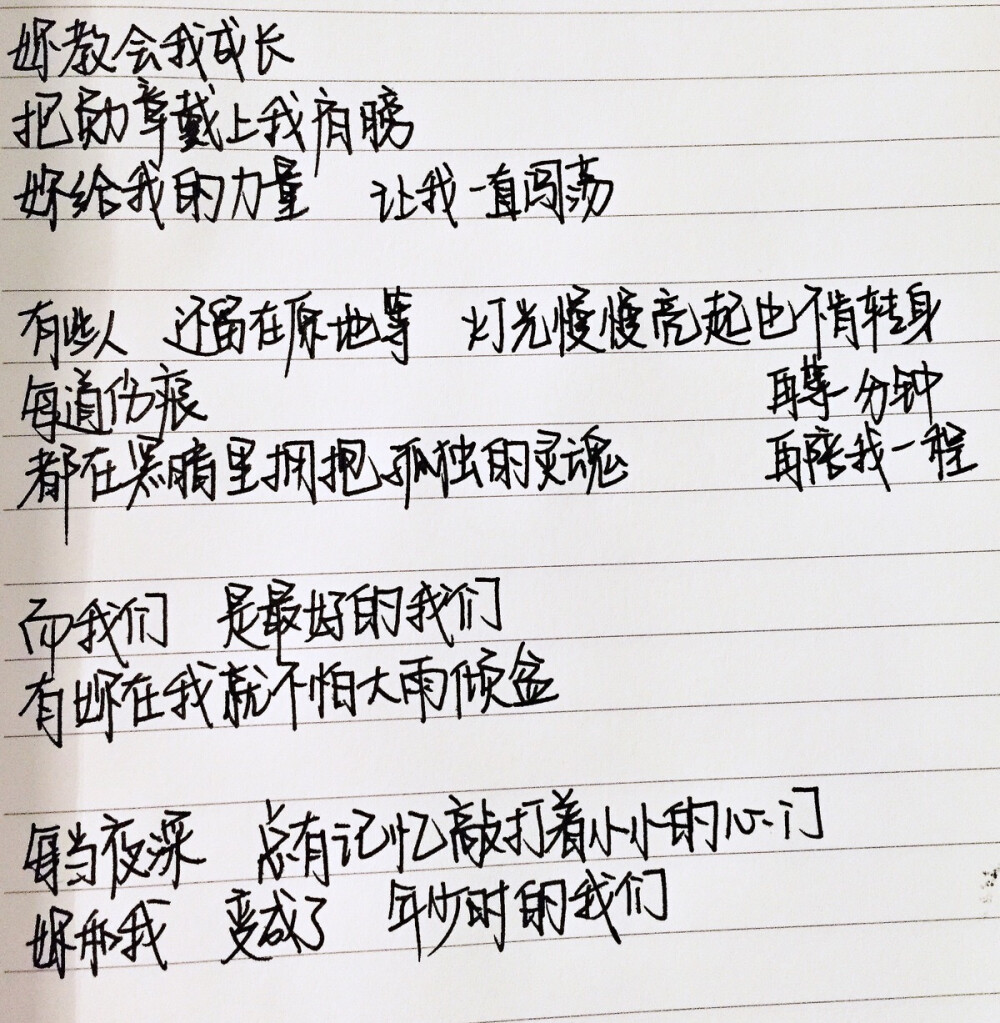 妳教会我成长
把勋章戴上我肩膀
妳给我的力量 让我一直闯荡
有些人 还留在原地等 灯光慢慢亮起也不肯转身
每道伤痕 再等一分钟
都在黑暗里拥抱孤独的灵魂 再陪我一程
而我们 是最好的我们
有妳在我就不怕大雨倾盆
每当夜深 总有记忆敲打着小小的心门
妳和我 变成了 年少时的我们